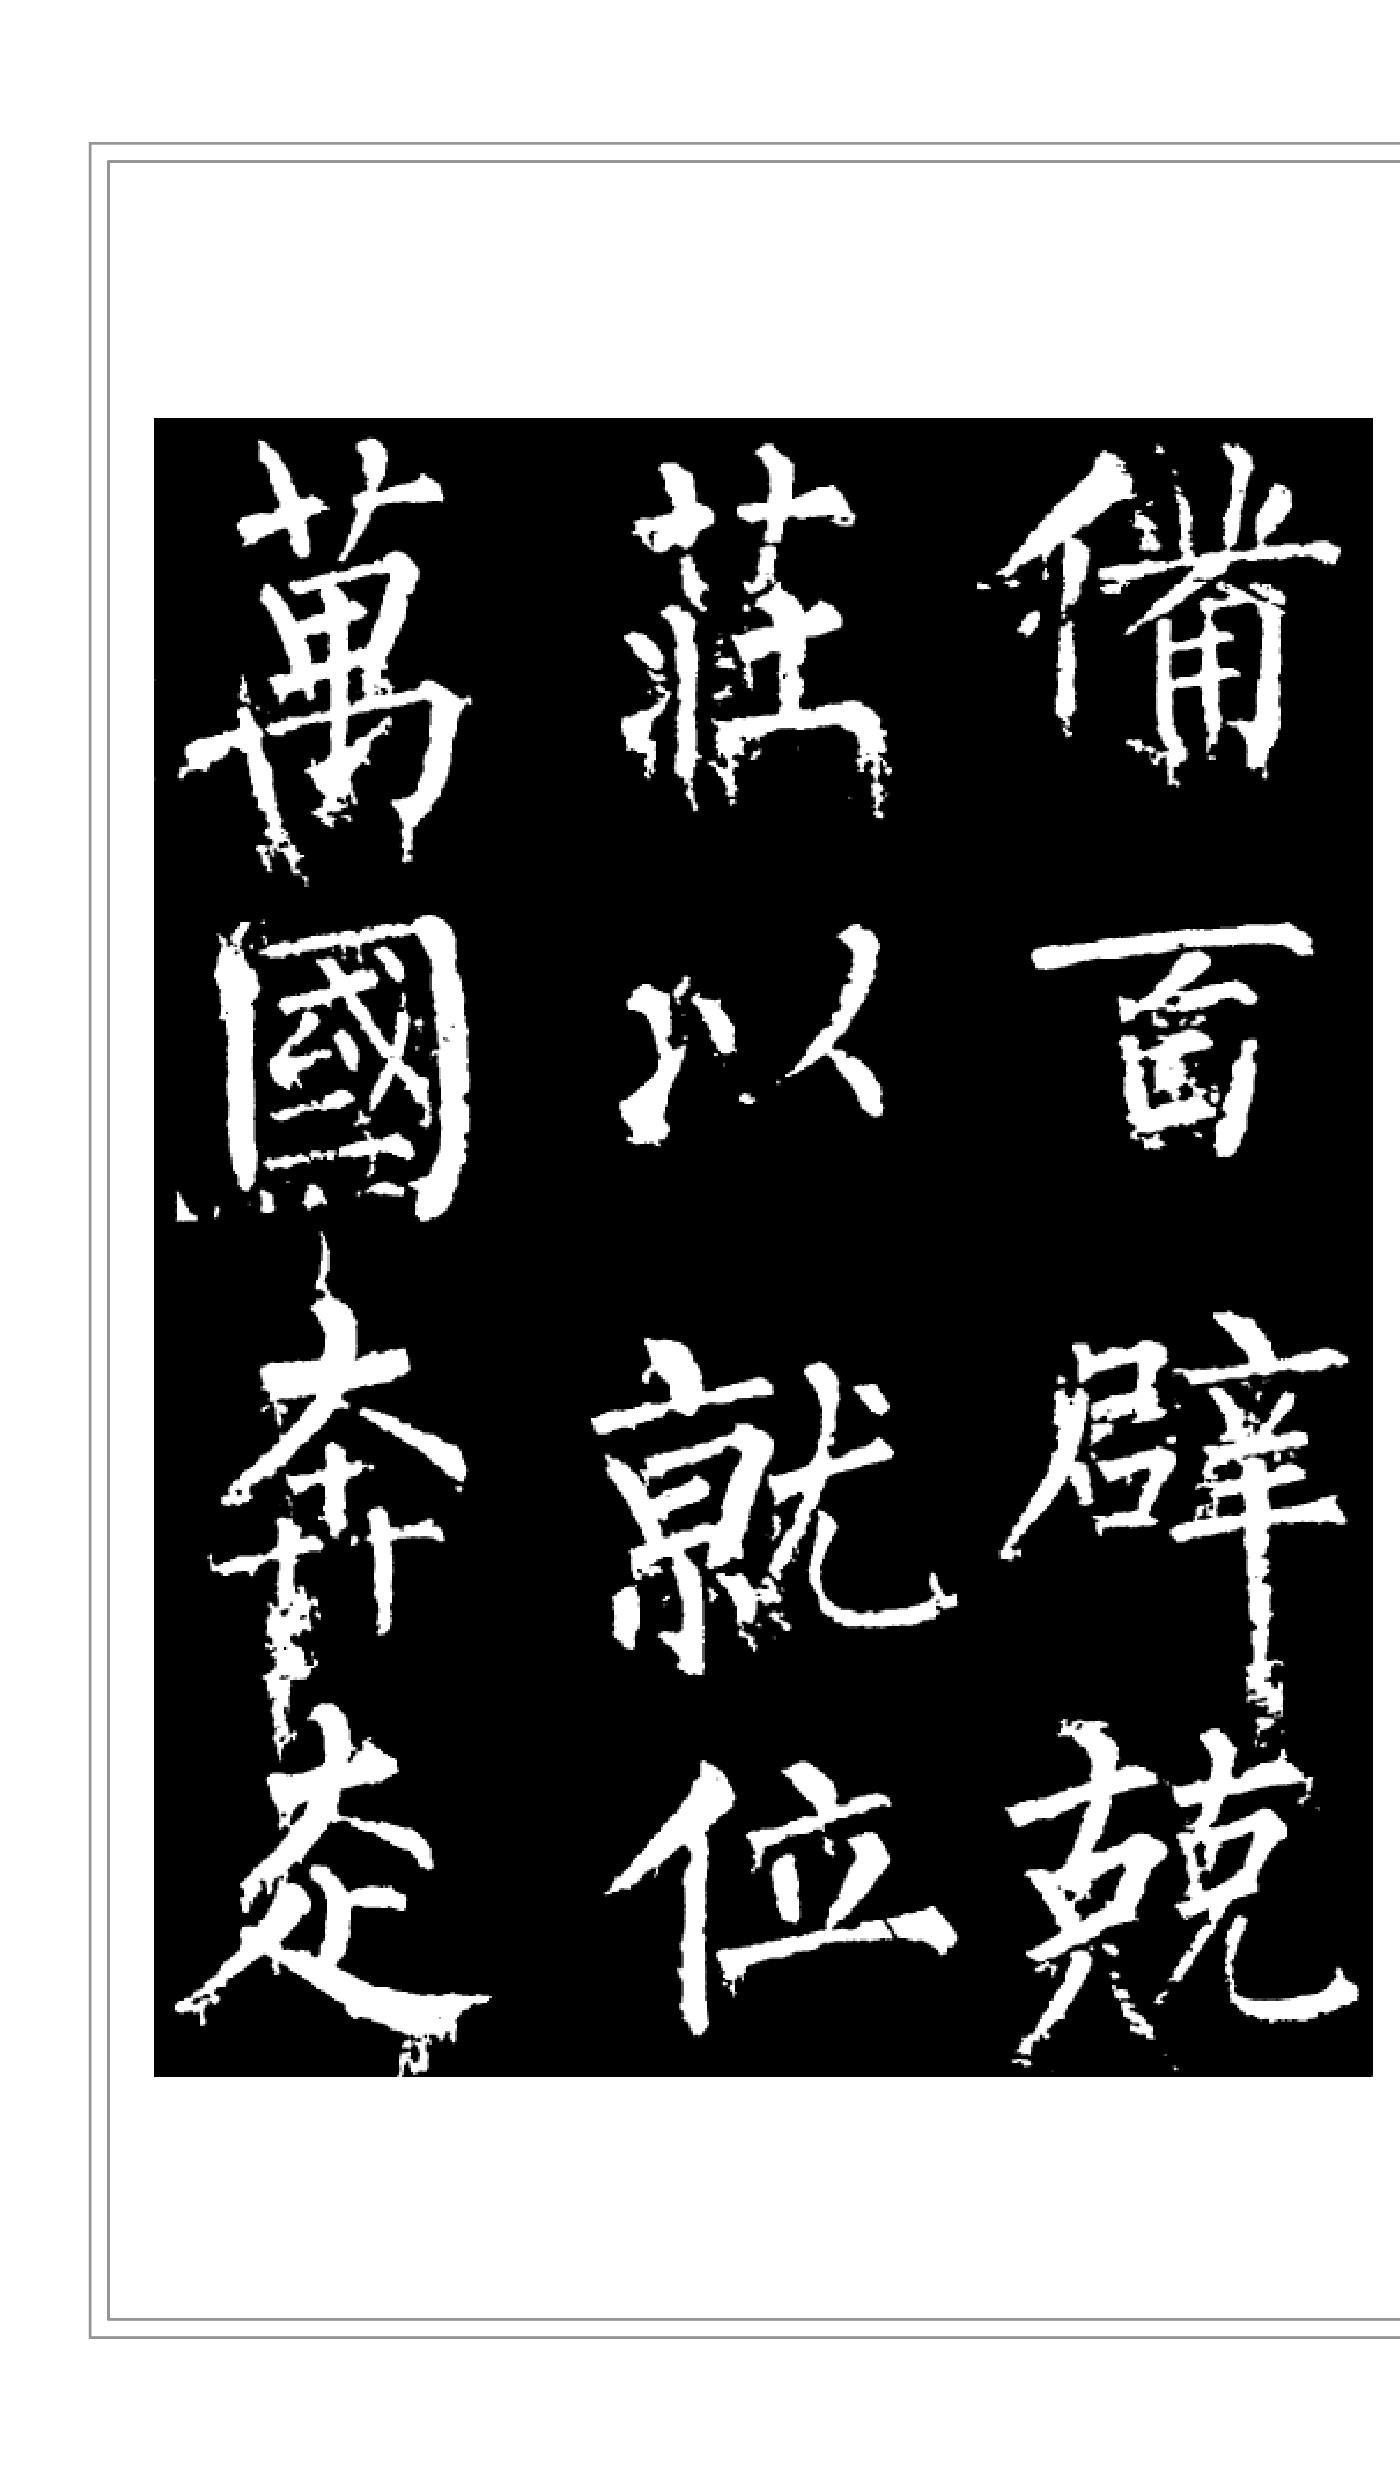 備百辟競
莊以就位
萬國奔走